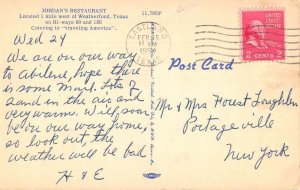 JORDAN'S RESTAURANT
Located 1 mile west of Weatherford, Texas
on Hi-ways 80 and 180
Catering to "traveling America".
11,795F
Wed 24
We are on our way
to Abilene, hope there
is some Mail. Lots of
Sand in the air and
very warm. Will soon
be on our way home,
so look out, the
weather will be bad
H & E
FEB 25
2 CENTS 2
Post Card
Mr & Mrs Forest Loughlen
Portageville
New York